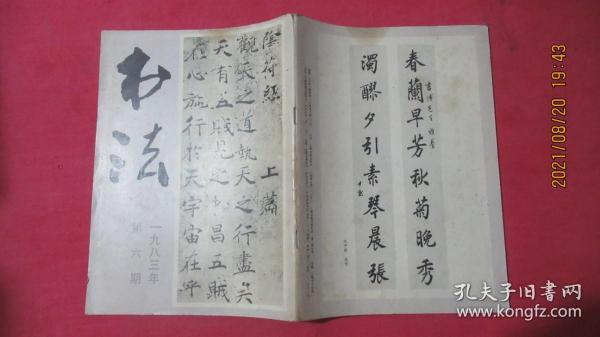 书法
一九八三年
第六期
陰符經 上篇
觀天之道執天之行盡矣
天有五賊見之者昌五賊
在心施行於天宇宙在乎
春蘭早芳秋菊晚秀
濁醪夕引素琴晨張
2021/08/20 19:43
孔夫子旧书网
book.kongfz.com